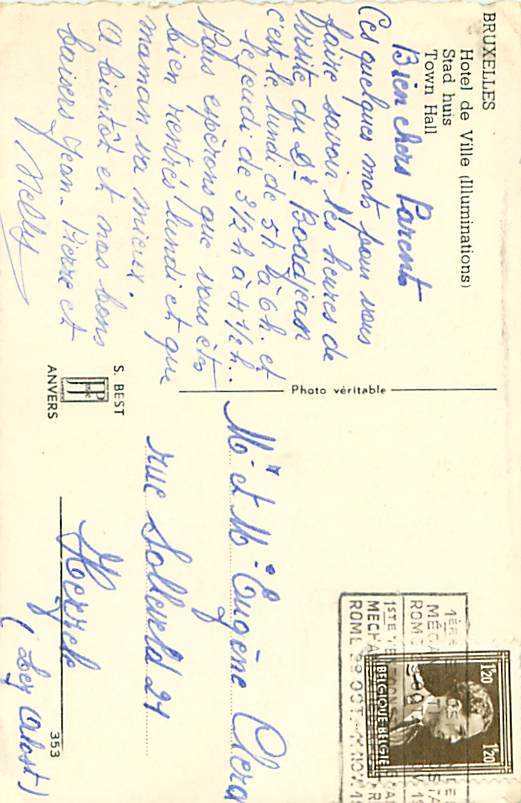 BRUXELLES
Hotel de Ville (Illuminations)
Stad huis
Town Hall
Bien chers Parents
Ces quelques mots pour vous
faire savoir les heures de
visite du Dr Boadjean
c'est le lundi de 5h à 6h. et
le jeudi de 3 1/2 h à 4 1/2 h..
Nous espérons que vous êtes
bien rentrés lundi et que
maman va mieux.
A bientôt et nos bons
baisers Jean-Pierre et
Nelly
Photo véritable
S. BEST
ANVERS
Mr et Me Eugène
rue Solleveld 21
Herzele
(Lez Alost)
353
1ÈRE
MÉCA
ROME
1STE
MECHA
ROME 29 OCT.
1.20
1.20
BELGIQUE-BELGIË